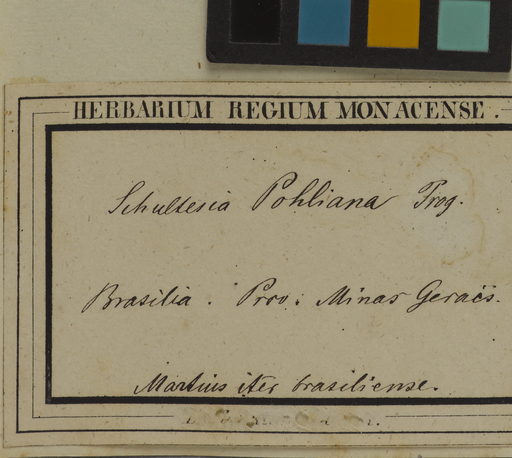 HERBARIUM REGIUM MONACENSE.
Schultesia Pohliana Prog.
Brasilia. Prov: Minas Geraës.
Martius iter brasiliense.